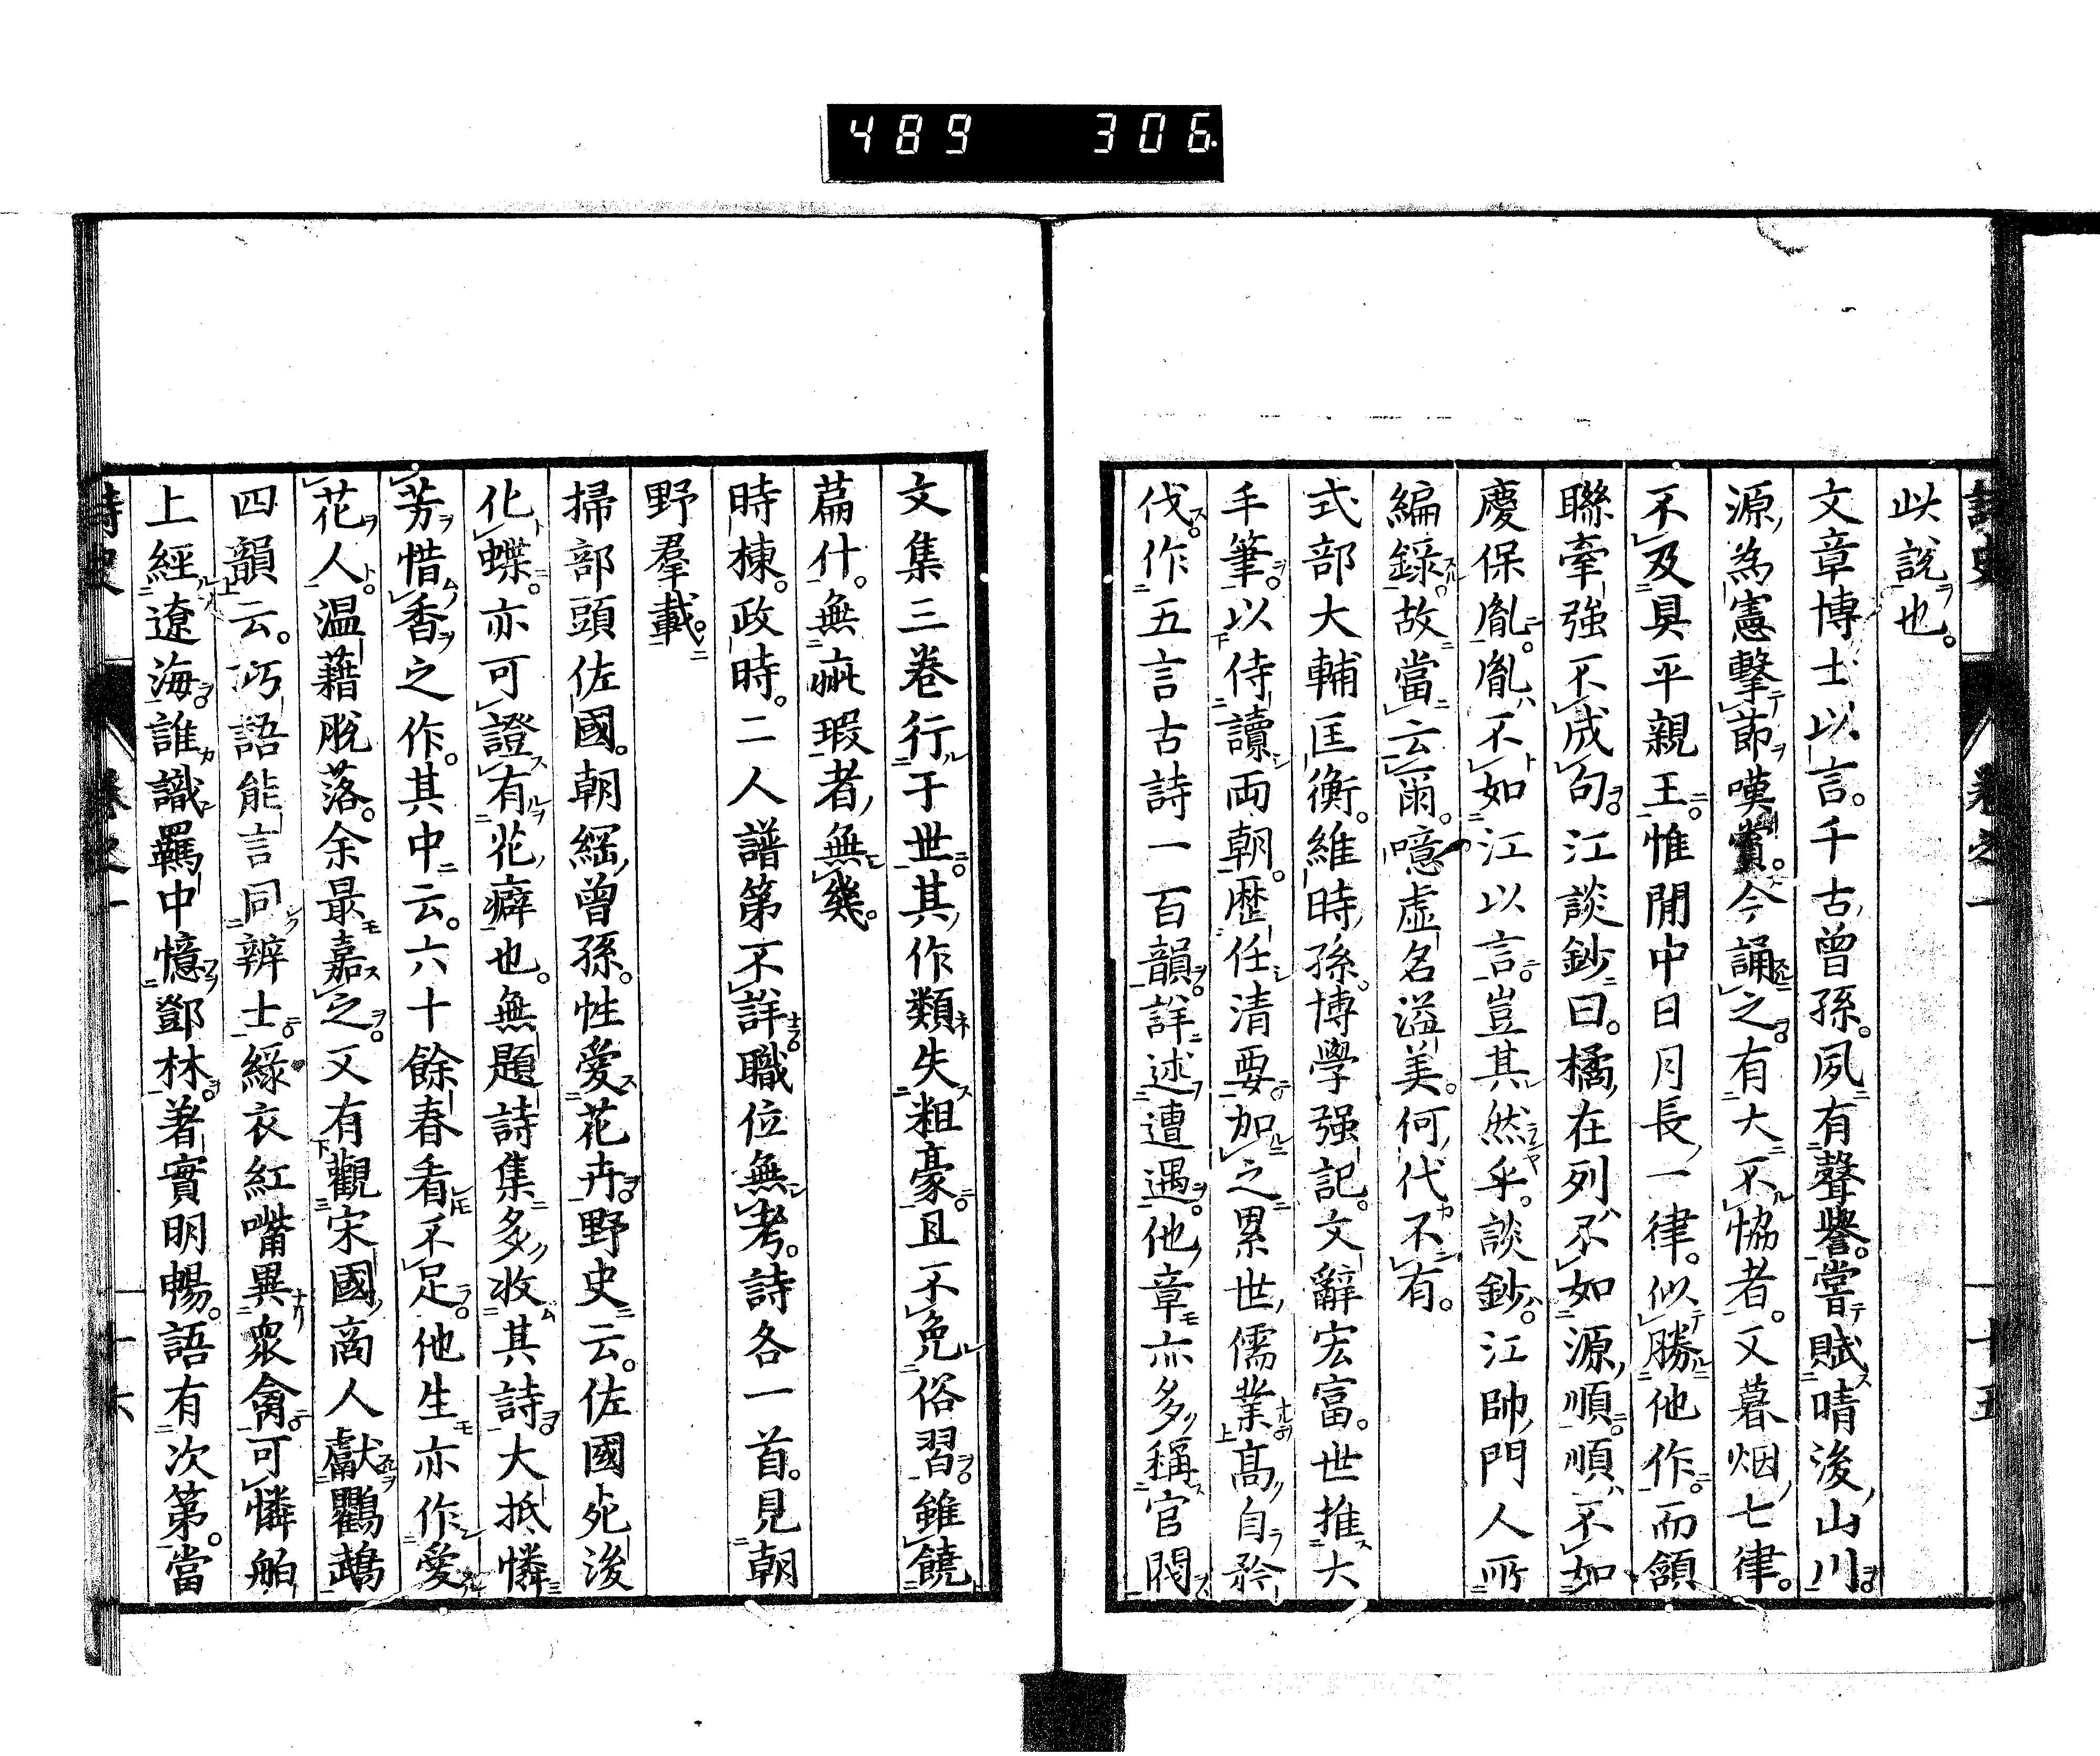 489 306
此說也。
文章博士以言。千古曾孫。夙有聲譽。嘗賦晴後山川
源為憲擊節嘆賞。今誦之。有大不協者。又暮烟七律。
不及具平親王。惟閒中日月長一律。似勝他作。而頷
聯牽強不成句。江談鈔曰。橘在列不如源順。順不如
慶保胤。胤不如江以言。豈其然乎。談鈔。江帥門人所
編錄。故當云爾。噫虛名溢美。何代不有。
式部大輔匡衡。維時孫。博學强記。文辭宏富。世推大
手筆。以侍讀両朝。歷任清要。加之累世儒業高自矜
伐。作五言古詩一百韻。詳述遭遇。他章亦多稱官閥
文集三卷行于世。其作類失粗豪。且不免俗習。雖饒
篇什。無疵瑕者無幾。
時棟。政時。二人譜第不詳。職位無考。詩各一首。見朝
野羣載。
掃部頭佐國。朝綱曾孫。性愛花卉。野史云。佐國死後
化蝶。亦可證有花癖也。無題詩集多收其詩。大抵憐
芳惜香之作。其中云。六十餘春看不足。他生亦作愛
花人。温藉脫落。余最嘉之。又有觀宋國商人獻鸚鵡
四韻云。巧語能言同辨士。綠衣紅嘴異衆禽。可憐舶
上經遼海。誰識羈中憶鄧林。著實明暢。語有次第。當
卷之一
十五